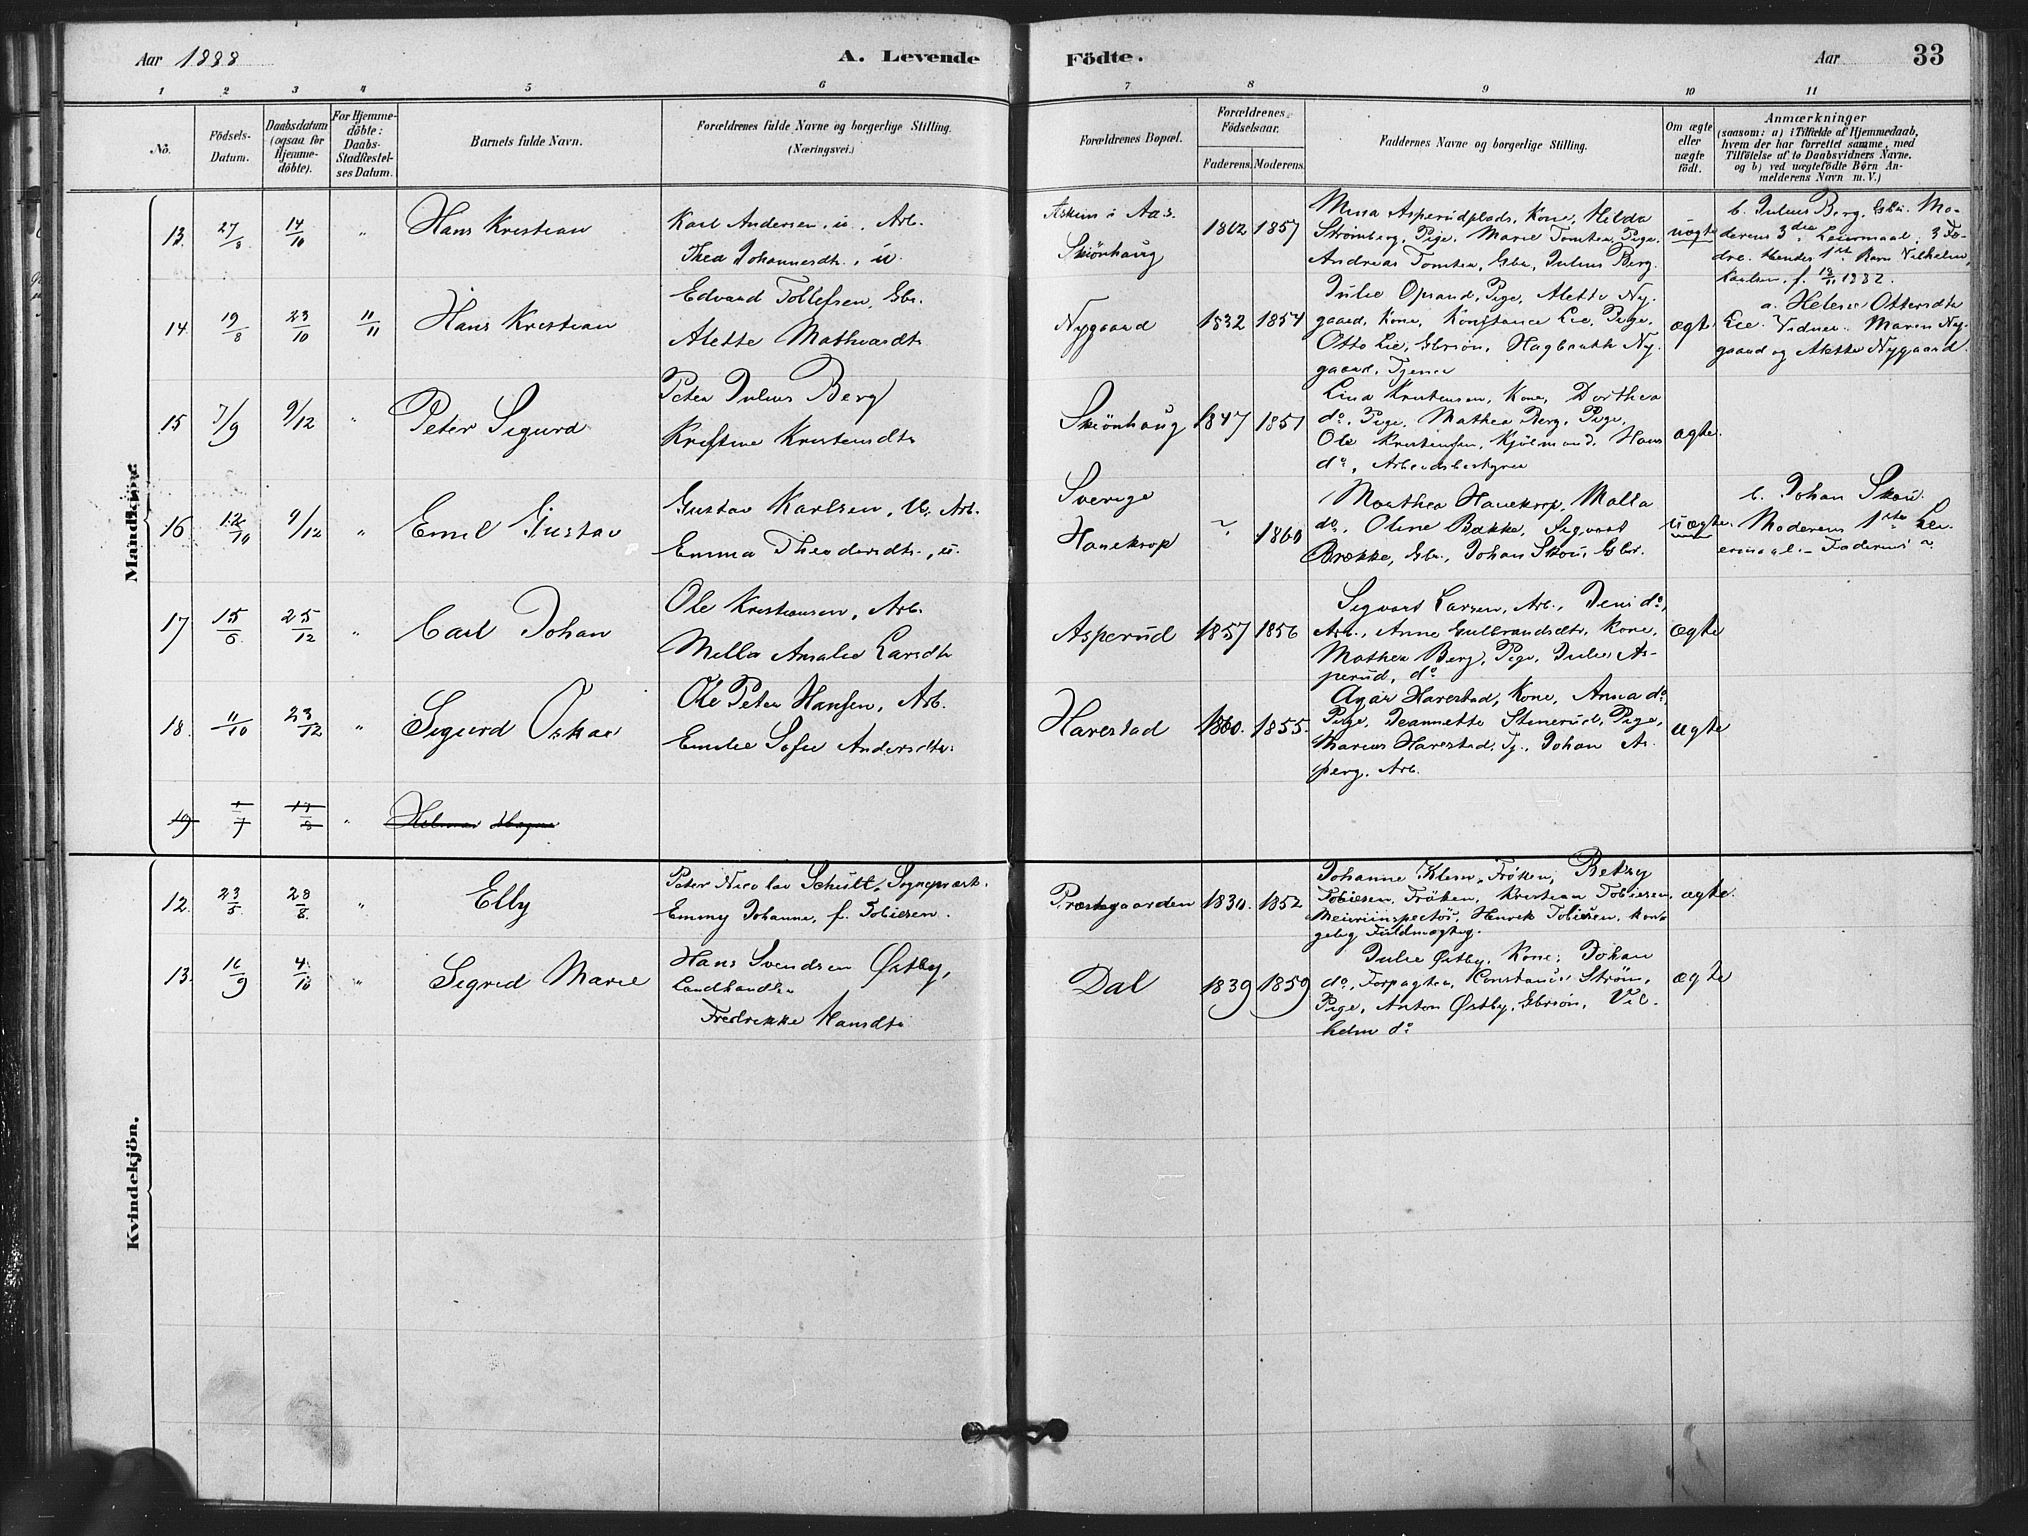 Aar 1888
A. Levende
Födte.
Aar
33
1 2 3 4 5 6 7 8 9 10 11
No.
Födsels-
Datum.
Daabsdatum
(ogsaa for
Hjemme-
döbte).
For Hjemme-
döbte:
Daabs-
Stadfæstel-
ses Datum.
Barnets fulde Navn.
Forældrenes fulde Navne og borgerlige Stilling.
(Næringsvei.)
Forældrenes Bopæl.
Forældrenes
Födselsaar.
Faderens. Moderens.
Faddernes Navne og borgerlige Stilling.
Om ægte
eller
uægte
födt.
Anmærkninger
(saasom: a) i Tilfælde af Hjemmedaab,
hvem der har forrettet samme, med
Tilföielse af to Daabsvidners Navne.
og b) ved uægtefödte Börn An-
melderens Navn m. V.)
Mandkjön.
13. 27/8 14/10 " Hans Kristian
Karl Andersen, u., Arb.
Thea Johannesdtr., u.
Askim i Aas
Skiönhaug
1862 1857
Mina Asperudplads, Kone, Hilda
Strömberg, Pige, Marie Tomten, Pige,
Andreas Tomten, Gbr., Julius Berg.
uægte
b. Julius Berg, Gbr. Mo-
derens 3die Leiermaal. 3 Fæ-
dre. Hendes 1ste Barn Vilhelm
Karlsen, f. 1882.
14 19/8 23/10 11/11 Hans Kristian
Edvard Tollefsen, Gbr.
Alette Mathiasdtr.
Nygaard
1832 1854
Julie Opsand, Pige, Alette Ny-
gaard, Kone, Konstance Lie, Pige,
Otto Lie, Gbrsön, Hagbarth Ny-
gaard, Tjener
ægte
a. Helene Ottersdtr
Lie. Vidner: Maren Ny-
gaard og Alette Nygaard.
15 7/9 9/12 " Peter Sigurd
Peter Julius Berg
Kristine Kristensdtr.
Skiönhaug
1847 1851
Lina Kristensen, Kone, Dorthea
do, Pige, Mathea Berg, Pige,
Ole Kristensen, Kjölmand, Hans
do, Arbeidsbestyrer
ægte.
16 12/10 9/12 " Emil Gustav
Gustav Karlsen, U., Arb.
Emma Theodorsdtr., u.
Sverige
Hanekrop
~ 1860
Marthea Hanekrop, Malla
do, Oline Bakke, Sigvart
Brække, Gbr., Johan Skou, Gbr.
uægte.
b. Johan Skou.
Moderens 1ste Lei-
ermaal. Faderens ~
17 15/6 25/12 " Carl Johan
Ole Kristiansen, Arb.
Milla Amalie Larsdtr
Asperud
1857 1856
Sigvart Larsen, Arb., Jens do,
Arb., Anne Gulbrandsdtr, Kone,
Mathea Berg, Pige, Julie As-
perud, do
ægte
18. 11/10 23/12 " Sigurd Oskar
Ole Peter Hansen, Arb.
Emilie Sofie Andersdtr.
Harestad
1860. 1855.
Agar Harestad, Kone, Anna do
Pige, Jeannette Stenerud, Pige,
Marius Harestad, Tj., Johan As-
perg, Arb.
ægte
19 "
Kvindekjön.
12. 23/5 28/8. " Elly
Peter Nicolai Schült, Sognepræst.
Emmy Johanne, f. Tobiesen.
Præstegaarden
1830. 1852
Johanne Klem, Fröken, Betzy
Tobiesen, Fröken, Kristian Tobiesen,
Meieriinspectör, Henrik Tobiesen, kon-
gelig Fuldmægtig.
ægte.
13. 16/9 4/10 " Sigrid Marie
Hans Svendsen Østby,
Landhandler
Fredrikke Hansdtr.
Dal
1839 1859
Julie Østby, Kone, Johan
do, Forpagter, Constance Ström,
Pige, Anton Østby, Gbrsön, Vil-
helm do
ægte